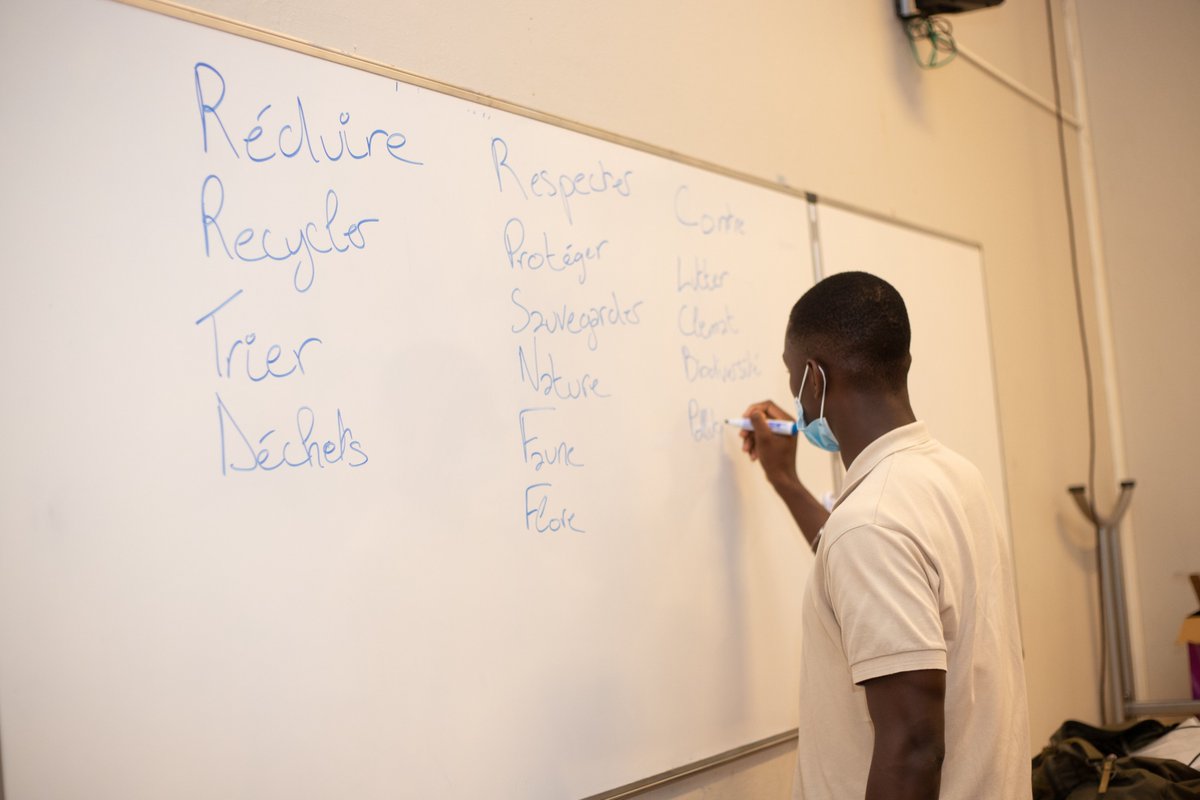 Réduire
Recycler
Trier
Déchets
Respecter
Protéger
Sauvegarder
Nature
Faune
Flore
Contre
Lutter
Climat
Biodiversité